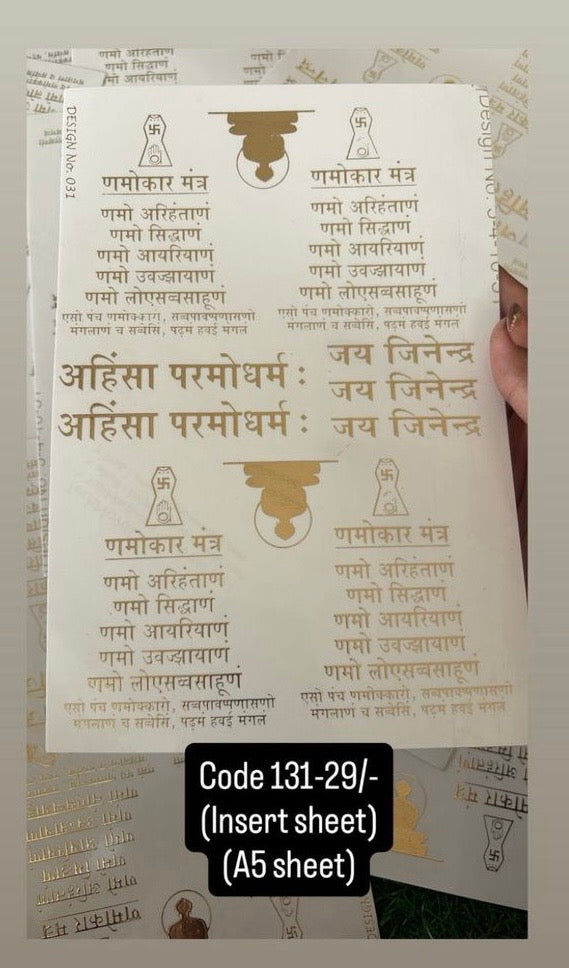 DESIGN No: 031
णमोकार मंत्र
णमो अरिहंताणं
णमो सिद्धाणं
णमो आयरियाणं
णमो उवज्झायाणं
णमो लोएसव्वसाहूणं
एसो पंच णमोक्कारो, सव्वपावप्पणासणो
मंगलाणं च सव्वेसिं, पढ़मं हवई मंगलं
णमोकार मंत्र
णमो अरिहंताणं
णमो सिद्धाणं
णमो आयरियाणं
णमो उवज्झायाणं
णमो लोएसव्वसाहूणं
एसो पंच णमोक्कारो, सव्वपावप्पणासणो
मंगलाणं च सव्वेसिं, पढ़मं हवई मंगलं
अहिंसा परमोधर्म :
अहिंसा परमोधर्म :
जय जिनेन्द्र
जय जिनेन्द्र
जय जिनेन्द्र
णमोकार मंत्र
णमो अरिहंताणं
णमो सिद्धाणं
णमो आयरियाणं
णमो उवज्झायाणं
णमो लोएसव्वसाहूणं
एसो पंच णमोक्कारो, सव्वपावप्पणासणो
मंगलाणं च सव्वेसिं, पढ़मं हवई मंगलं
णमोकार मंत्र
णमो अरिहंताणं
णमो सिद्धाणं
णमो आयरियाणं
णमो उवज्झायाणं
णमो लोएसव्वसाहूणं
एसो पंच णमोक्कारो, सव्वपावप्पणासणो
मंगलाणं च सव्वेसिं, पढ़मं हवई मंगलं
Code 131-29/-
(Insert sheet)
(A5 sheet)